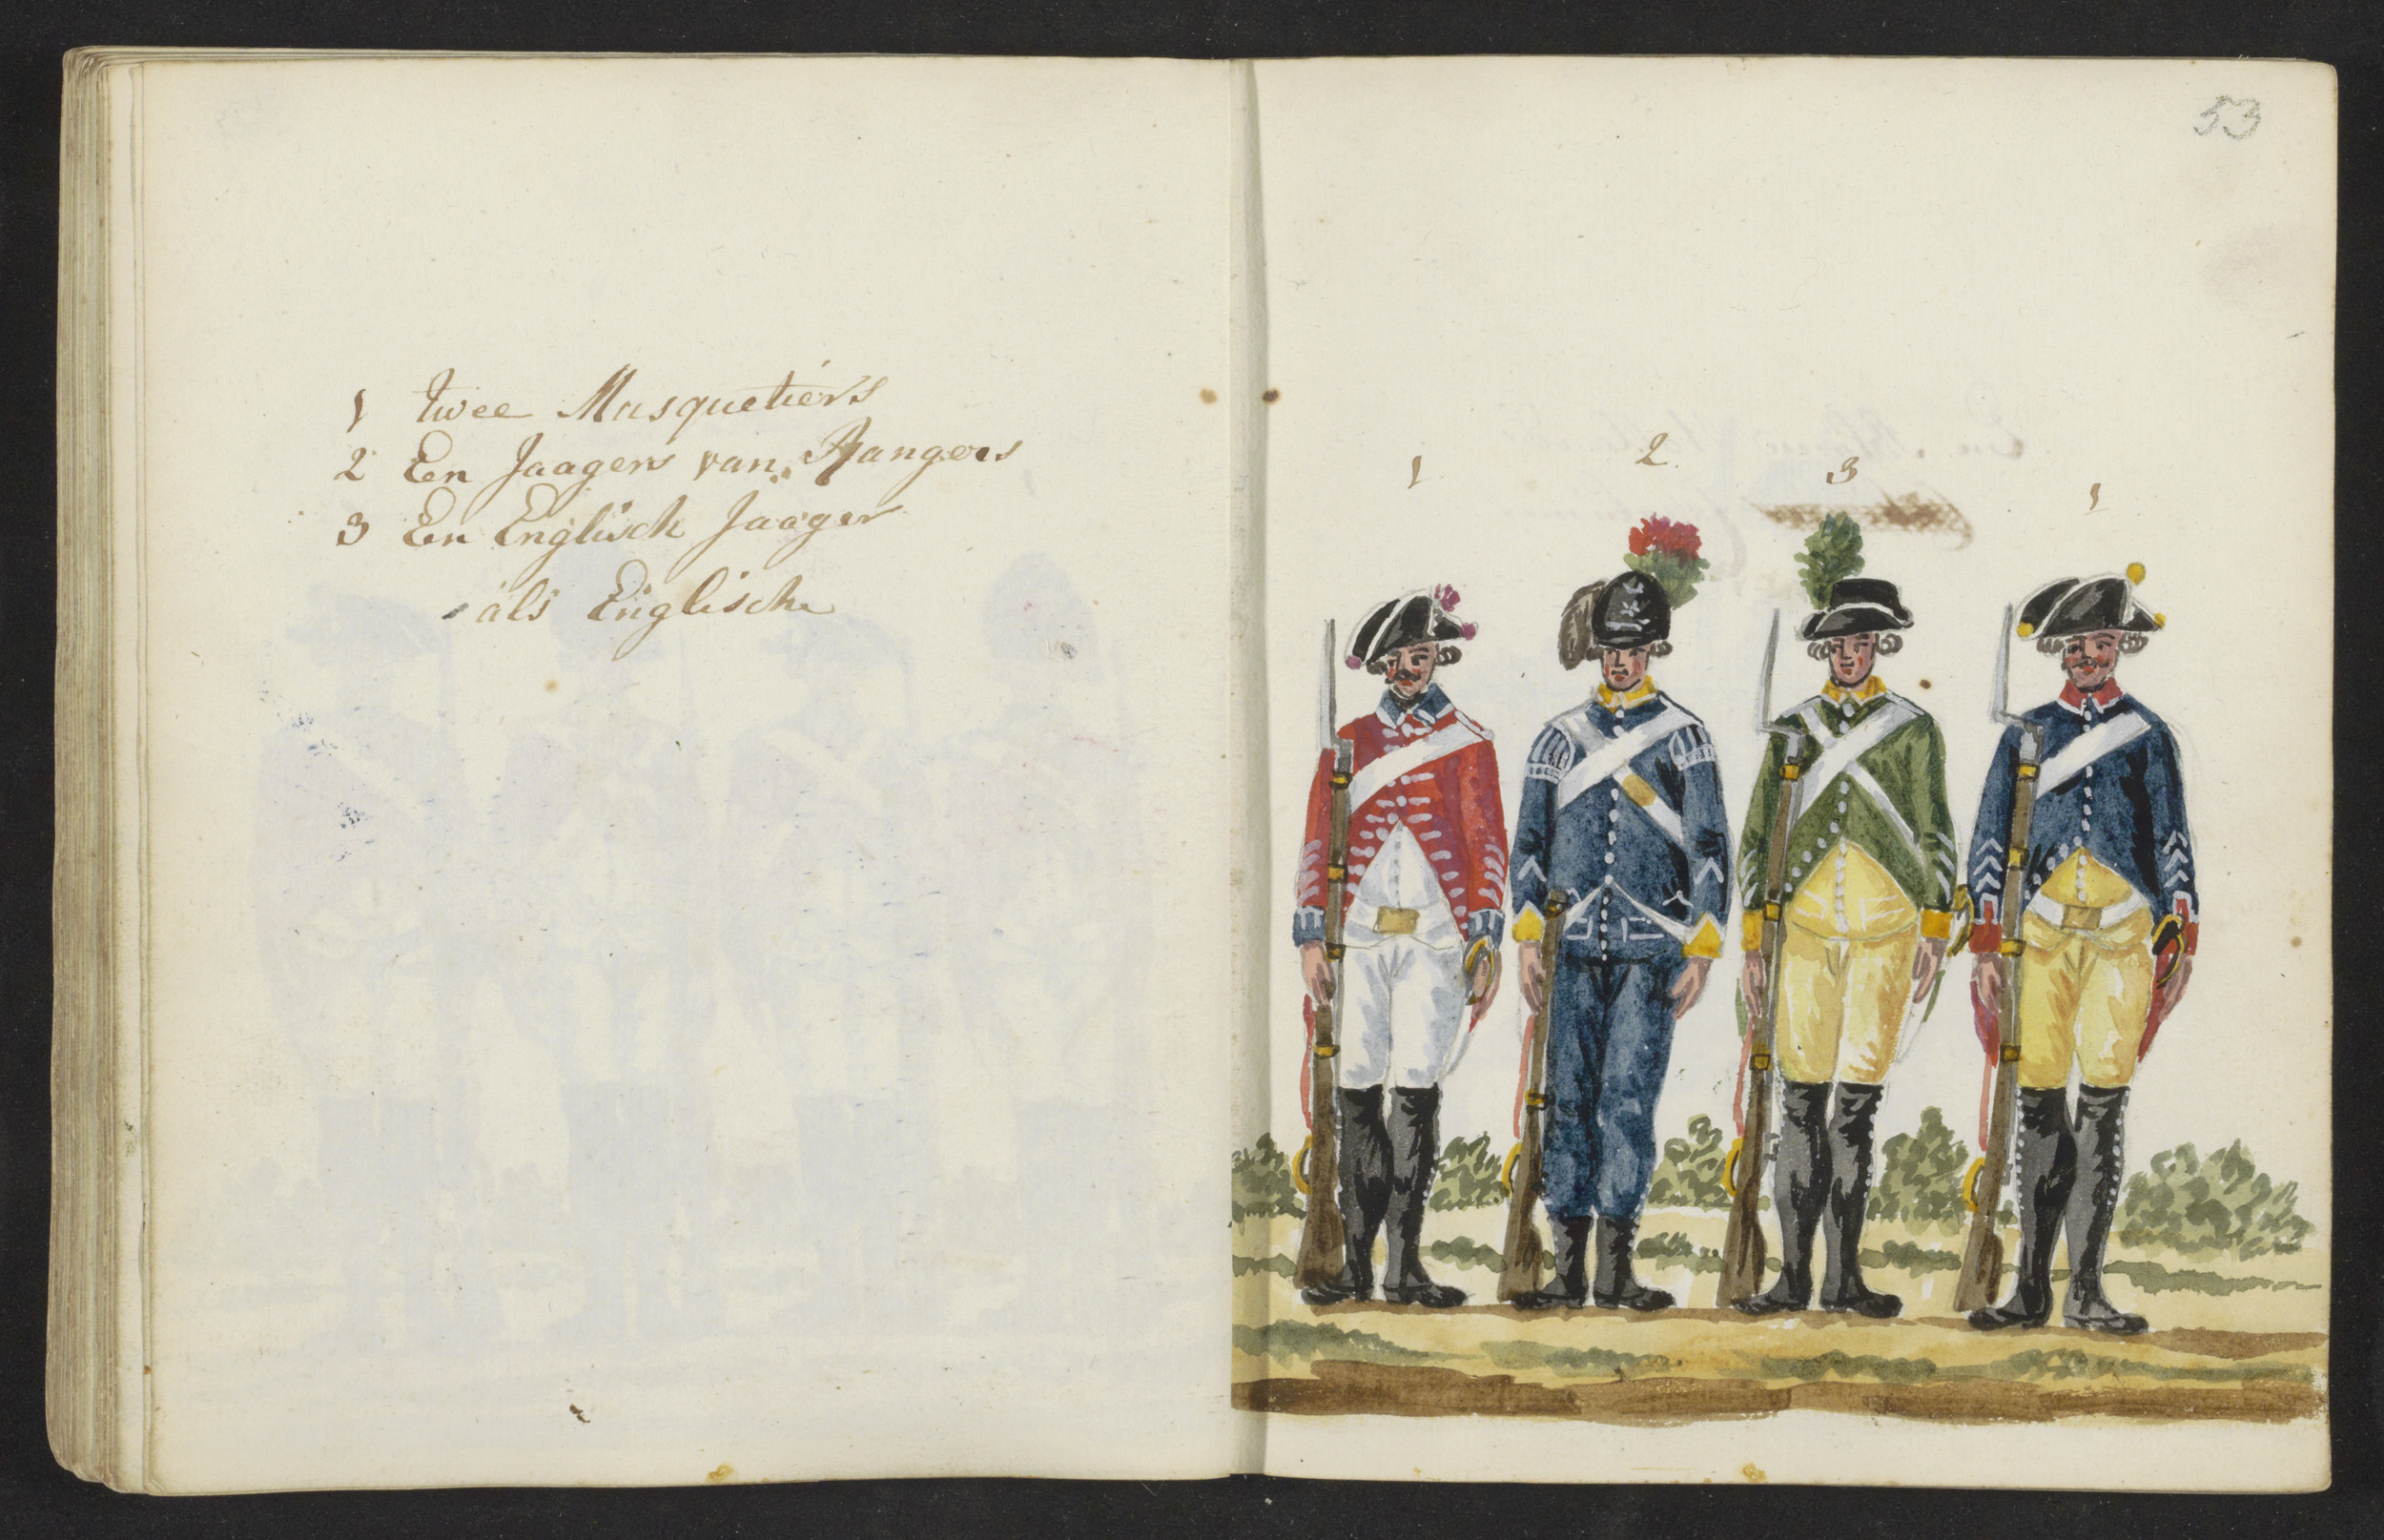 1 twee Musquetiers
2 En Jaagers van Rangers
3 En Englisch Jaager
als Englische
53
1 2 3 1